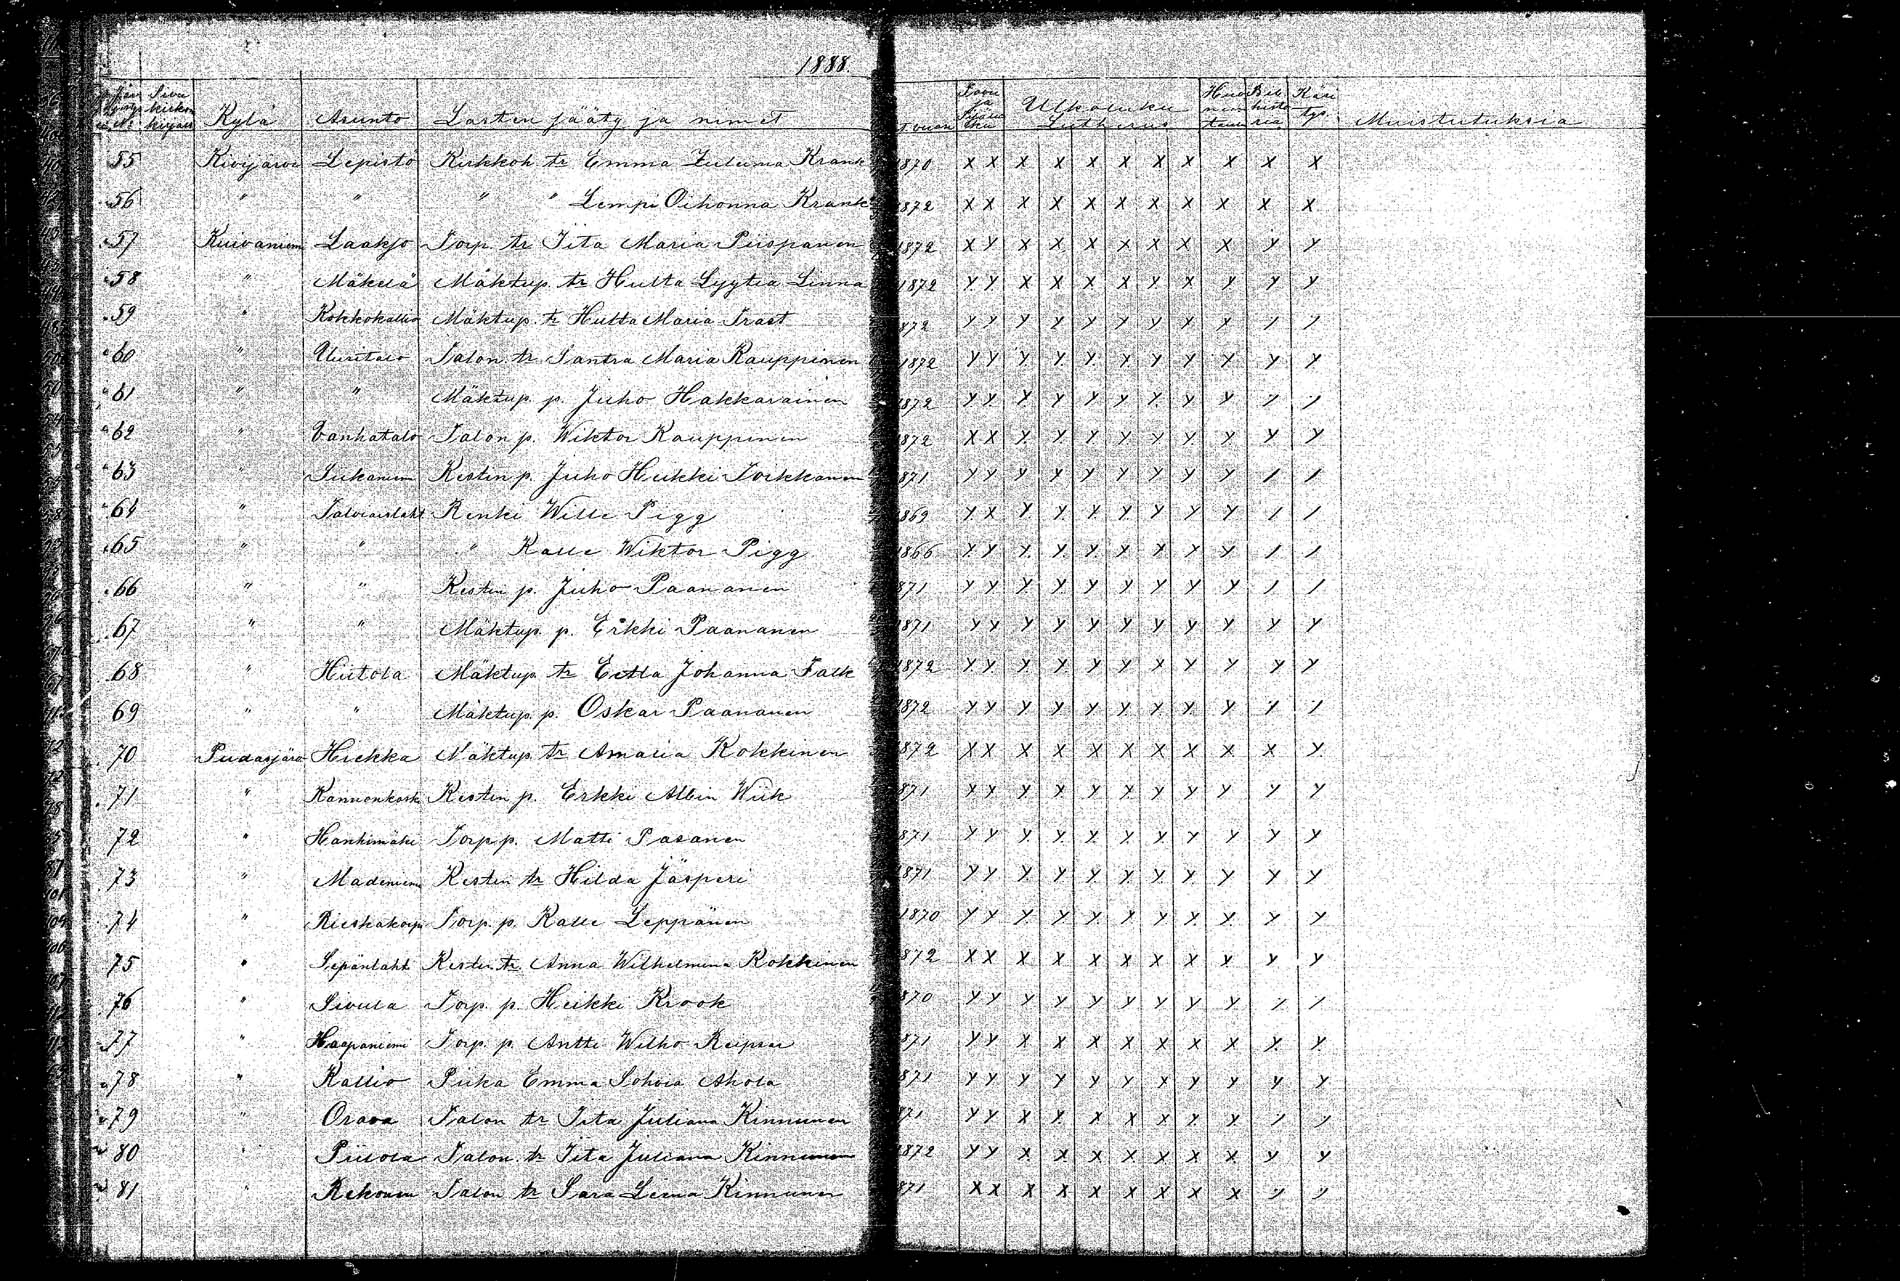 1888.
Kylä Asunto Lasten sääty ja nimet Ulkoluku Lutherus Muistutuksia
55 Kivijärvi Lepistö Kirkkoh. tr Emma Krank 1870 x x x x x x x x x x x
56 " " " " Lempi Krank 1872 x x x x x x x x x x x
57 Kuivaniem Laakso Torp. tr Iita Maria Piispanen 1872 x y x x x x x x x y y
58 " Mäkelä Mäktup. tr Hulta Lyytia Linna 1872 y y x x x x y x y y y
59 " Kokkokallio Mäktup. tr Hulta Maria Trast 1872 y y y y y y y x x / /
60 " Uuritalo Talon tr Santra Maria Kauppinen 1872 y y y y y y y y x y y
61 " " Mäktup. p. Juho Hakkarainen 1872 y y y y y y y y y / /
62 " Vanhatalo Talon p. Wiktor Kauppinen 1872 x x y y y y y y y y y
63 " Kestin p. Juho Heikki Toikkanen 1871 y y y y y y y y y / /
64 " Renki Wille Pigg 1869 y x y y y y y y y / /
65 " " " Kalle Wiktor Pigg 1866 y y y y y y x y y / /
66 " " Kestin p. Juho Paananen 1871 y y y y y y y y y / /
67 " " Mäktup. p. Erkki Paananen 1871 y y y y y y y y y y y
68 " Hiitola Mäktup. tr Eetla Johanna Falk 1872 y y y y y y x y y y y
69 " " Mäktup. p. Oskar Paananen 1872 y y y y y y y y y / /
70 Pudasjärv Hiekka Mäktup. tr Amalia Kokkinen 1872 x x x x x x x x x x y
71 " Kannonkosk Kestin p. Erkki Albin Wiik 1871 y y y y y y y y y y y
72 " Hankimäki Torp. p. Matti Pasanen 1871 y y y y y y y y y y y
73 " Kestin tr Hilda Jäsperi 1871 y y y y y y y y y y y
74 " Torp. p. Kalle Leppänen 1870 y y y y y y y y y y y
75 " Sepänlaht Kestin tr Anna Wilhelmina Kokkinen 1872 x x x x x x x x x y y
76 " Sivula Torp. p. Heikki Krook 1870 y y y y y y y y y / /
77 " Haapaniemi Torp. p. Antti Wilho 1871 y y x x x x x x x y y
78 " Kallio Piika Emma Sohvia Ahola 1871 y y y y y y x y y y y
79 " Orava Talon tr Iita Juliana Kinnunen 1871 y y x x x x x x x / y
80 " Piilola Talon tr Iita Juliana Kinnunen 1872 y y x x x x x x x y y
81 " Talon tr Sara Liena Kinnunen 1871 x x x x x x x x x y y